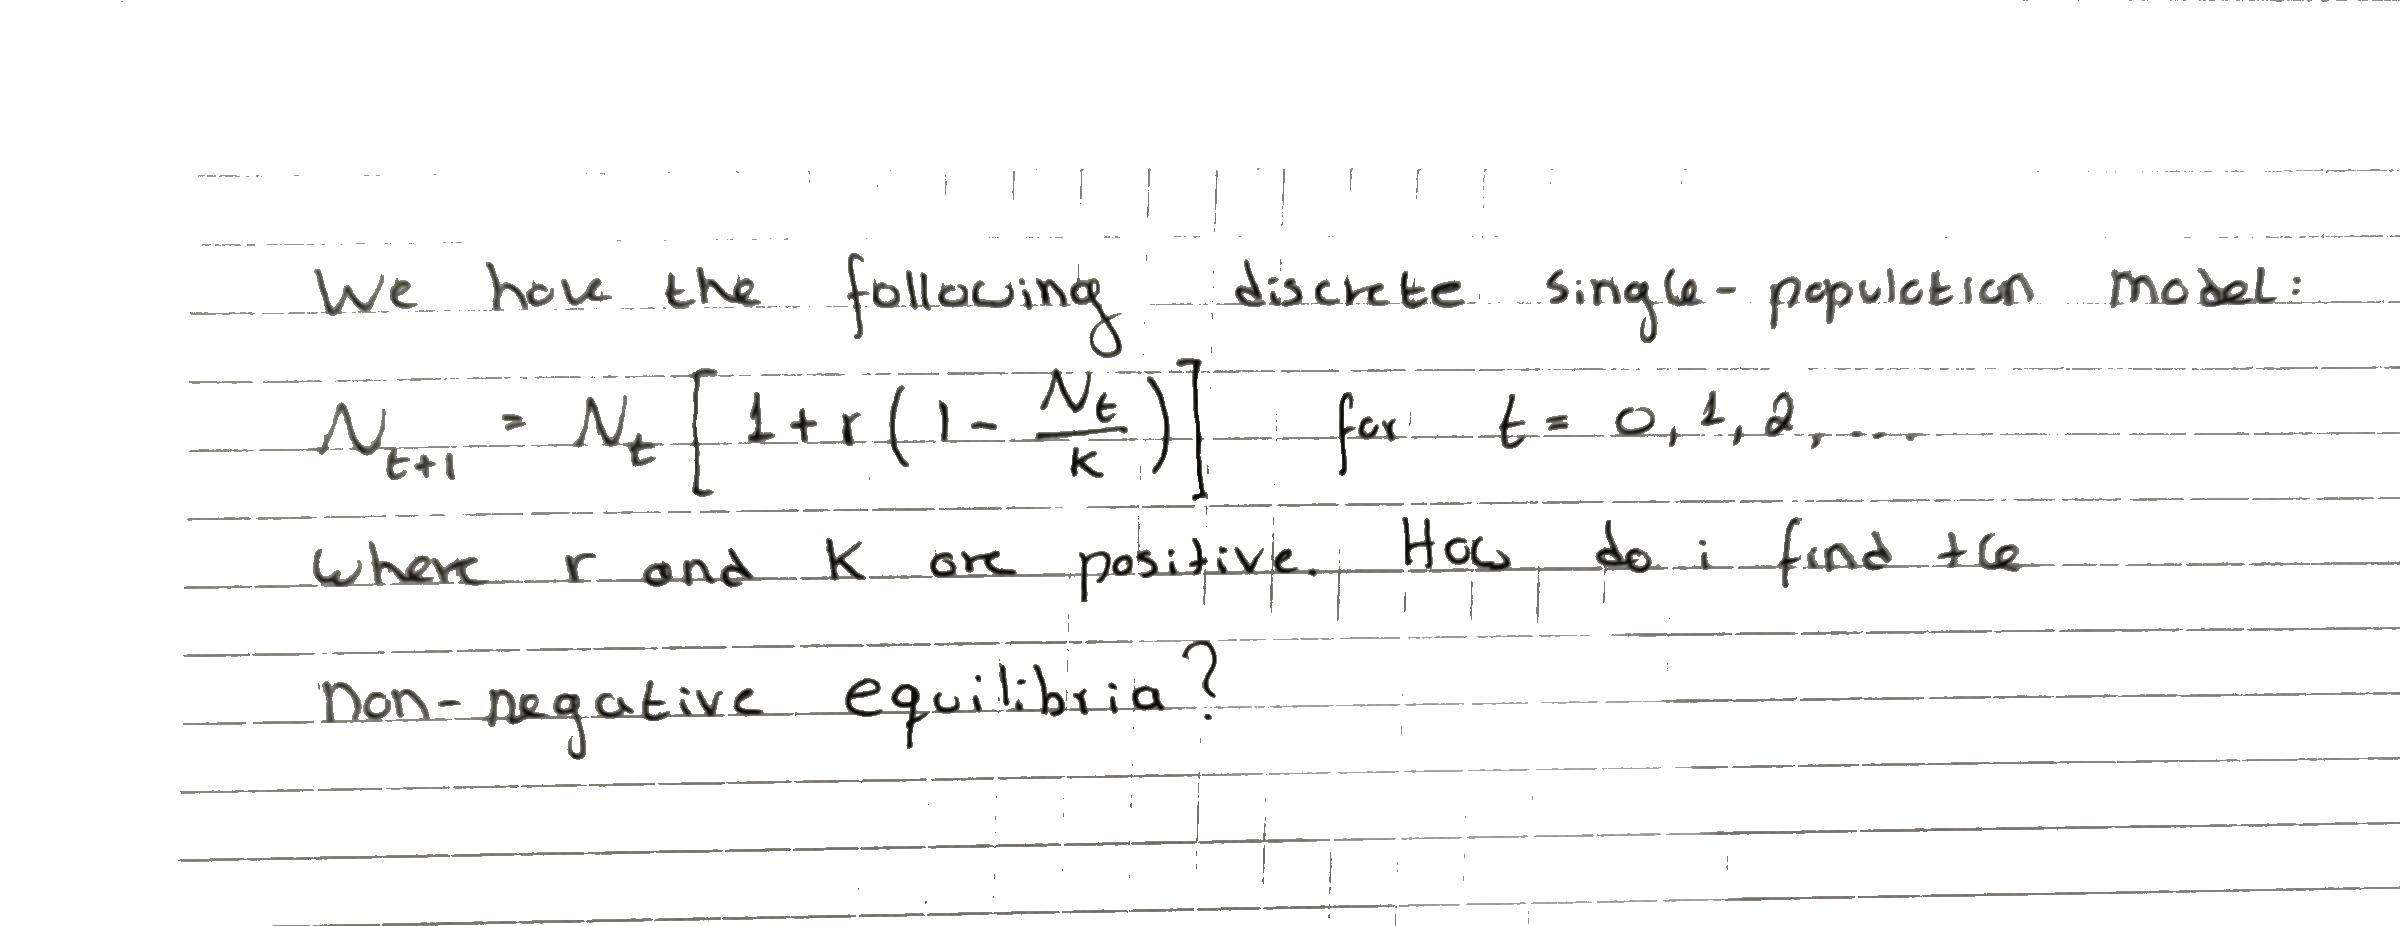 We have the following discrete single-population model:
N_{t+1} = N_t [ 1 + r ( 1 - \frac{N_t}{K} ) ] for t = 0, 1, 2, ....
where r and K are positive. How do i find the
non-negative equilibria?